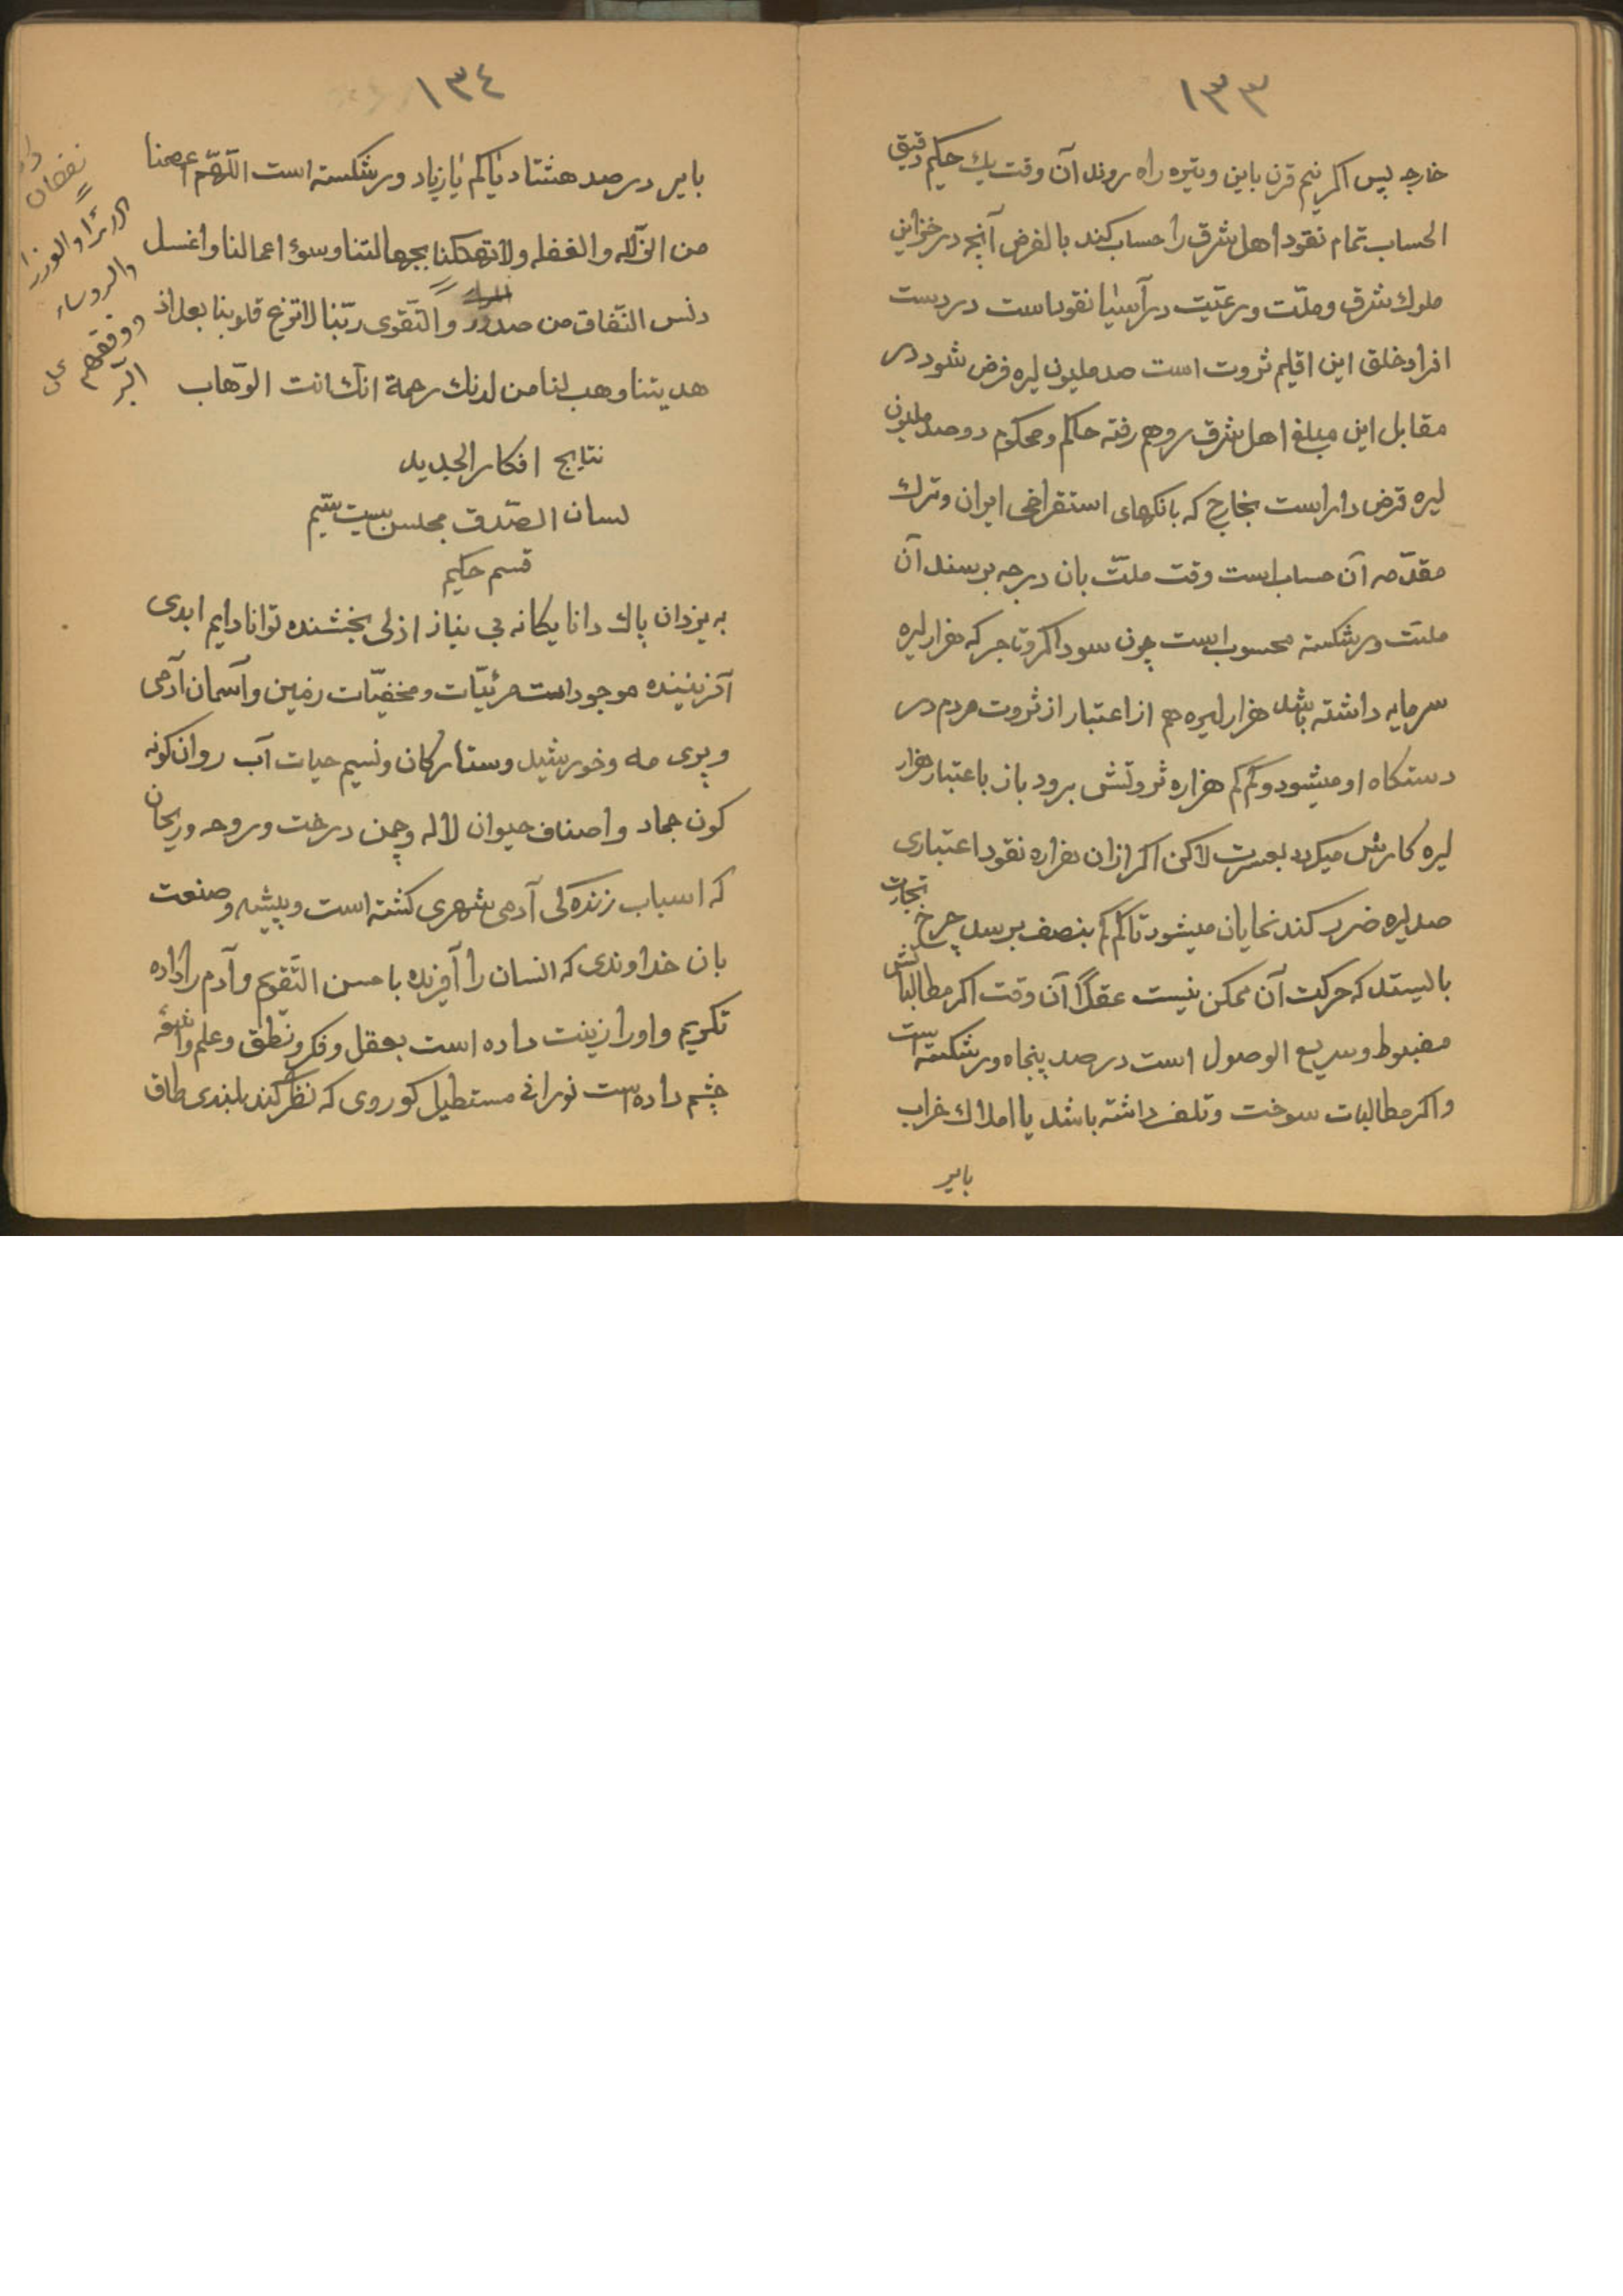 ١٣٣
خارجه پس اکر نیم قرن باین وتیره راه روند آن وقت یك حکیم دقیق
الحساب تمام نقود اهل شرق را حساب کند بالفرض آنچه در خزاین
ملوك شرق وملّت ورعیّت در آسیا نقود است در دست
افراد خلق این اقلیم ثروت است صد ملیون لیره فرض شود در
مقابل این مبلغ اهل شرق روهم رفته حاکم ومحکوم دوصد ملیون
لیره قرض دار است بخارج که بانکهای استقراضی ایران وترك
مقدّمه آن حساب است وقت ملّت بان درجه برسند آن
ملّت ورشکسته محسوب است چون سوداکر وتاجر که هزار لیره
سرمایه داشته باشد هزار لیره هم از اعتبار از ثروت مردم در
دستکاه او میشود وکم کم هزاره ثروتش برود باز باعتبار هزار
لیره کارش میکردد بعسرت لاکن اکر ازان هزاره نقود اعتباری
صد لیره ضرر کند نمایان میشود تا کم کم بنصف برسد چرخ تجارت
بالیستد که حرکت آن ممکن نیست عقلاً آن وقت اکر مطالباتش
مضبوط وسریع الوصول است در صد پنجاه ورشکسته است
واکر مطالبات سوخت وتلف داشته باشد یا املاك خراب
بایر
١٣٤
بایر در صد هشتاد یا کم یا زیاد ورشکسته است اللّهمّ اعصمنا
من الزّلّه والغفله ولا تهلکنا بجهالتنا وسوء اعمالنا واغسل
دنس النّفاق من صدور والتّقوی ربّنا لا تزغ قلوبنا بعد اذ
هدیتنا وهب لنا من لدنك رحمة انّك انت الوّهاب
نقصان
والوزرا
والروساء
ووفقهم علی
البّر
نتایج افکار الجدید
لسان الصّدق مجلس بیست ششم
قسم حکیم
به یزدان پاك دانا یکانه بی نیاز ازلی بخشنده توانا دایم ابدی
آفریننده موجود است مرئیّات ومخفیّات زمین وآسمان آدمی
وپری مه وخورشید وستارکان ونسیم حیات آب روان کونه
کون جماد واصناف حیوان لاله وچمن درخت وروحه وریحان
که اسباب زنده کی آدمی شهری کشته است وپیشه وصنعت
بان خداوندی که انسان را آفریده باحسن التّقویم وآدم را داده
تکریم واورا زینت داده است بعقل وفکر ونطق وعلم واشعّه
چشم داده است نورانی مستطیل کوروی که نظر کند بلندی طاق